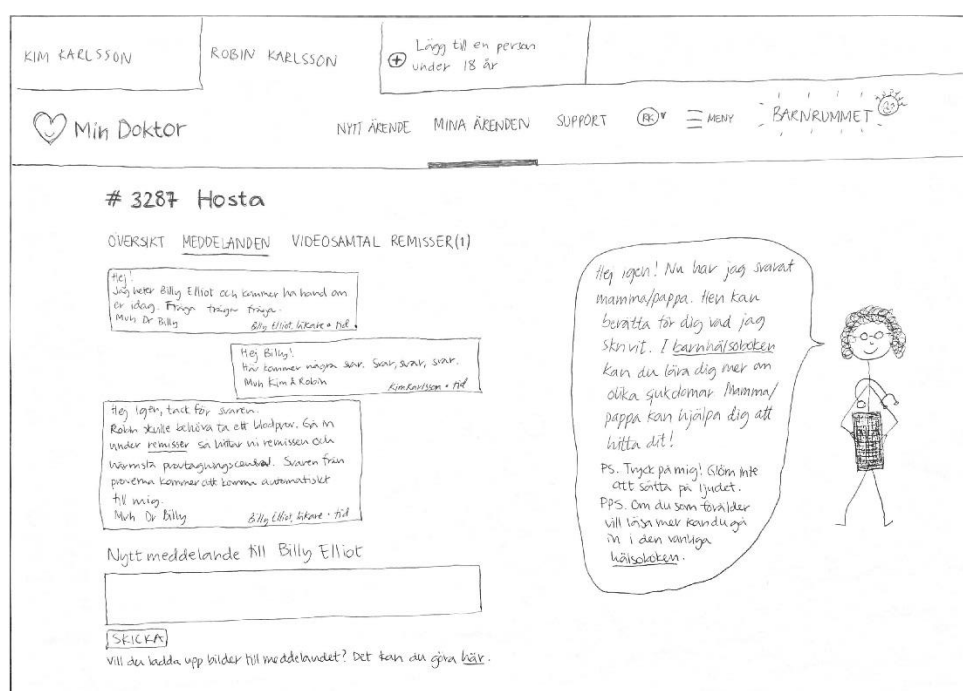 KIM KARLSSON
ROBIN KARLSSON
Lägg till en person
under 18 år
Min Doktor
NYTT ÄRENDE MINA ÄRENDEN SUPPORT RK MENY BARNRUMMET
# 3287 Hosta
ÖVERSIKT MEDDELANDEN VIDEOSAMTAL REMISSER(1)
Hej!
Jag heter Billy Elliot och kommer ha hand om
er idag. Fråga fråga fråga.
Mvh Dr Billy
Billy Elliot, läkare • tid
Hej Billy!
Här kommer några svar. Svar, svar, svar.
Mvh Kim & Robin
Kim Karlsson • tid
Hej igen, tack för svaren.
Robin skulle behöva ta ett blodprov. Gå in
under remisser så hittar ni remissen och
närmsta provtagningscentral. Svaren från
proverna kommer att komma automatiskt
till mig.
Mvh Dr Billy
Billy Elliot, läkare • tid
Nytt meddelande till Billy Elliot
SKICKA
Vill du ladda upp bilder till meddelandet? Det kan du göra här.
Hej igen! Nu har jag svarat
mamma/pappa. Hen kan
berätta för dig vad jag
skrivit. I barnhälsoboken
kan du lära dig mer om
olika sjukdomar. Mamma/
pappa kan hjälpa dig att
hitta dit!
PS. Tryck på mig! Glöm inte
att sätta på ljudet.
PPS. Om du som förälder
vill läsa mer kan du gå
in i den vanliga
hälsoboken.